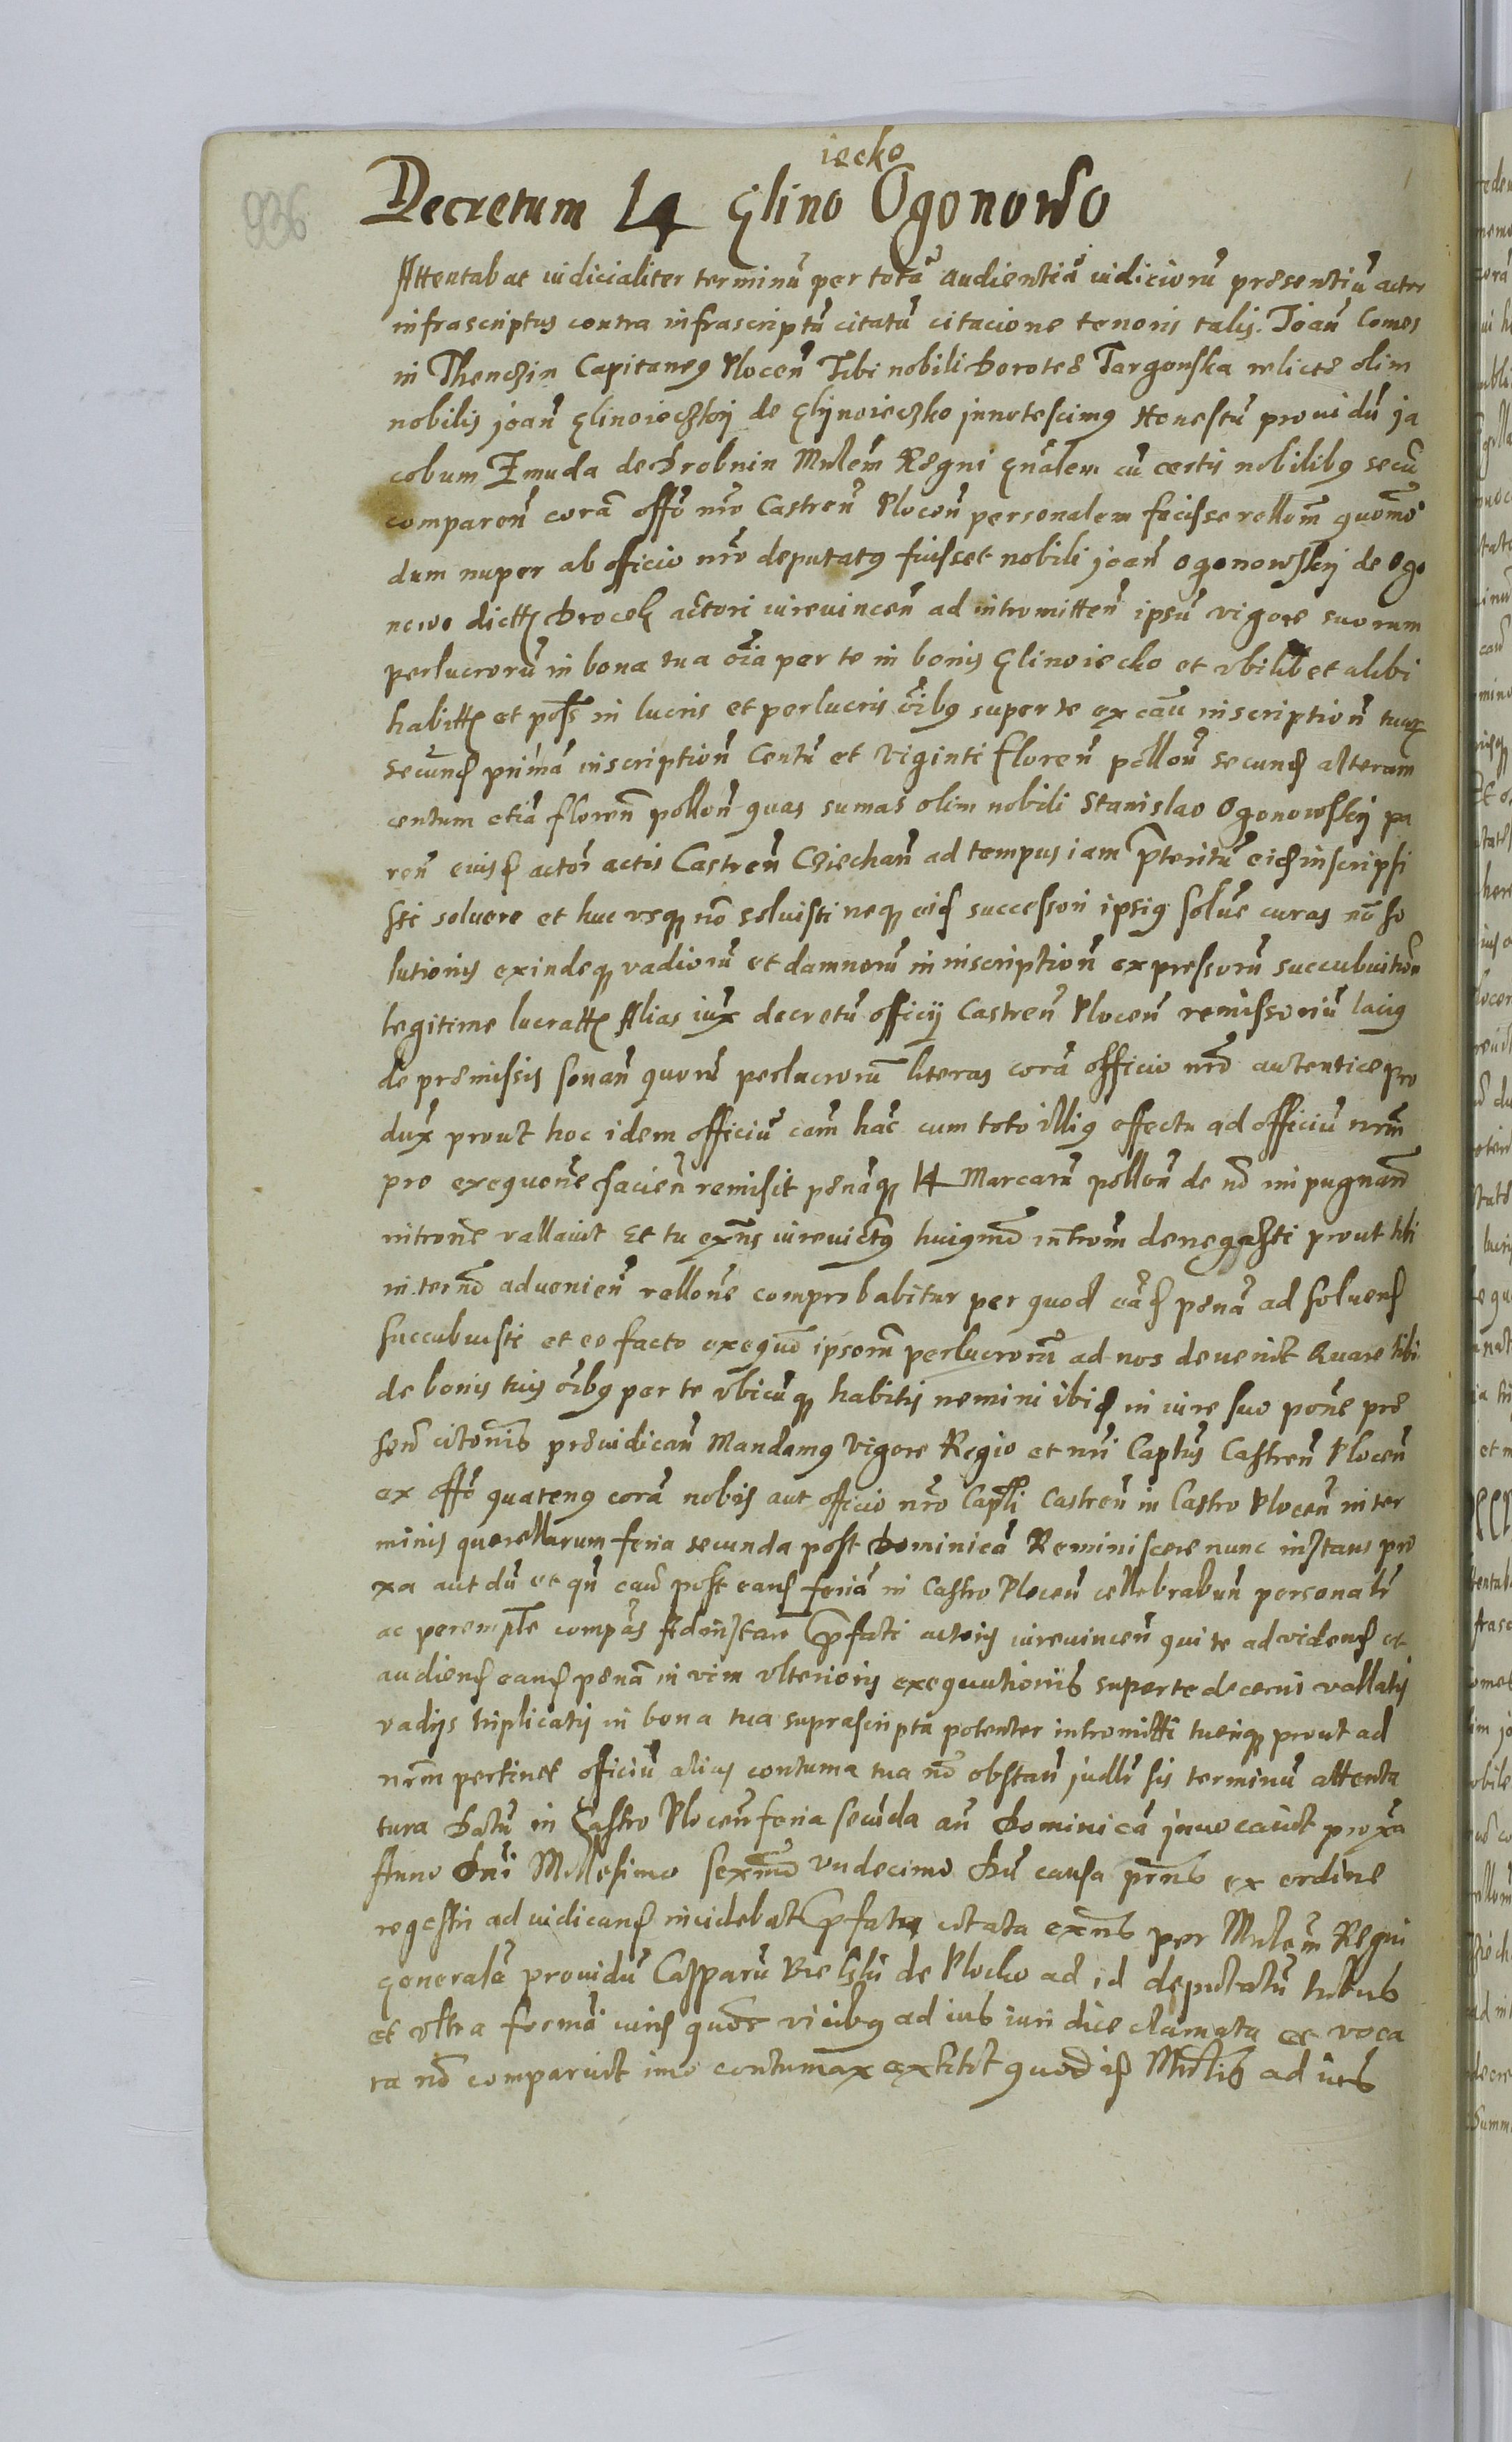 iecko
936
Decretum 14 Glino Ogonowo
Attentabat iudicialiter terminũ per totã audientiã iudiciorũ presentiũ actor
infrascriptus contra infrascriptũ citatũ citacione tenoris talis. Joañ Comes
in Thenczin Capitaneus Plocen̄ Tibi nobili Dorotee Targonska relicte olim
nobilis joañ Glinoieczkij de Glijnoieczko jnnotescimus Honestũ prouidũ ja
cobum Zmuda de Drobnin Mnlem̄ Regni gn̄alem cũ certis nobilibus secũ
comparen̄ corã offõ nrõ Castren̄ Plocen̄ personalem fecisse rellom̄ quomõ
dum nuper ab officio nrõ deputatus fuisset nobili joañ Ogonowskij de Ogo
nowo dictus Drocek actori iurevincen̄ ad intromitten̄ ipsũ vigore suorum
perlucrorũ in bona tua oĩa per te in bonis Glinoiecko et vbilibet alibi
habitta et poss in lucris et perlucris oĩbus super te ex cau inscription̄ tuar
secund primã inscription̄ Centũ et Viginti floren̄ pollon̄ secund alteram
centum etiã floren̄ pollon̄ quas sumas olim nobili Stanislao Ogonowskij pa
ren̄ eiusd actor actis Castren̄ Ciechan̄ ad tempus iam pteritũ eid inscripsi
sti soluere et huc vsq nõ soluisti neq eid successori ipsius solue curas nõ so
lutionis exindeq vadiorũ et damnorũ in inscription̄ expressorũ succubuition̄
legitime lucratta Alias iux decretũ officij Castren̄ Plocen̄ remissoriũ lacius
de premissis sonan̄ quorũ perlucrorũ literas corã officio nrõ autentice pro
dux prout hoc idem officiũ cam̄ hac cum toto illius effectu ad officiũ nrm̄
pro exequone facien̄ remisit penãq 14 Marcarũ pollon̄ de nõ impugnan̄
introne vallauit Et tu exn̄s iurevictus huiusmõ introm̄ denegasti prout tibi
in termõ aduenien̄ rellone comprobabitur per quod eãd penã ad soluend
succubuisti et eo facto exequõ ipsorm̄ perlucrorũ ad nos deuenit Quare tibi
de bonis tuis oĩbus per te vbicũq habitis nemini ibid in iure suo pone pre
sen citonis preiudican̄ Mandamus Vigore Regio et nri Captus Castren̄ Plocen̄
ex offõ quatenus corã nobis aut officio nrõ Capli Castren̄ in Castro Plocen̄ in ter
minis querellarum feria secunda post Dominicã Reminiscere nunc instans pro
xa aut dũ et qn̄ caũ post eand feriã in Castro Plocen̄ cellebrabun̄ personalr
ac perempte compas Ad instan pfati actoris iurevincen̄ qui te ad vidend et
audiend eand penã in vim vlterioris exequutionis super te decerni vallatis
vadijs triplicatis in bona tua suprascripta potenter intromitti tueriq prout ad
nrm̄ pertinet officiũ alias contuma tua nõ obstan̄ judlr sis terminũ attenta
tura Datũ in Castro Plocen̄ feria secũda an̄ Dominicã jnuocauit proxã
Anno Dni Millesimo sexmõ vndecimo Dũ causa prns ex ordine
regestri ad iudicand incidebat pfata citata exn̄s per Mnlem̄ Regni
generale prouidũ Casparũ Bielski de Plocko ad id deputatũ tribus
et vltra formã iuris quor vicibus ad ius iuri dice clamata et voca
ta nõ comparuit imo contumax extitit quod id Mnlis ad ius